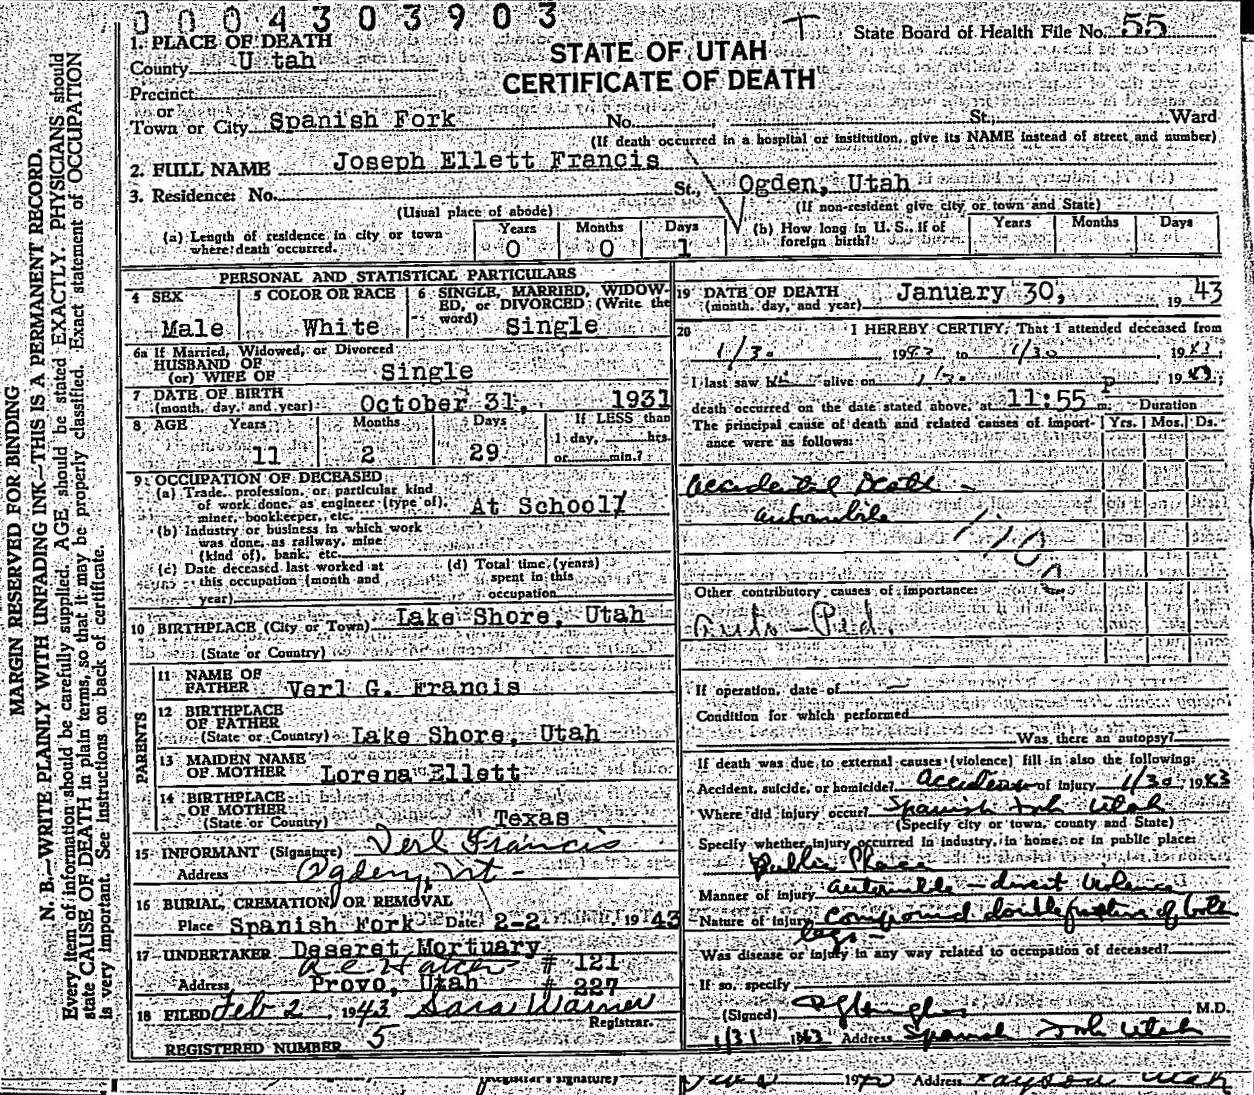 0004303903
State Board of Health File No. 55
STATE OF UTAH
CERTIFICATE OF DEATH
1. PLACE OF DEATH
County Utah
Precinct
or
Town or City Spanish Fork No. St., Ward
(If death occurred in a hospital or institution, give its NAME instead of street and number)
2. FULL NAME Joseph Ellett Francis
3. Residence: No. St., Ogden, Utah
(Usual place of abode) (If non-resident give city or town and State)
(a) Length of residence in city or town where death occurred. Years 0 Months 0 Days 1
(b) How long in U. S., if of foreign birth? Years Months Days
PERSONAL AND STATISTICAL PARTICULARS
4 SEX Male
5 COLOR OR RACE White
6 SINGLE, MARRIED, WIDOWED, or DIVORCED (Write the word) Single
6a If Married, Widowed, or Divorced
HUSBAND OF
(or) WIFE OF Single
7 DATE OF BIRTH
(month, day, and year) October 31, 1931
8 AGE Years 11 Months 2 Days 29 If LESS than 1 day, hrs. or min.?
9 OCCUPATION OF DECEASED
(a) Trade, profession, or particular kind of work done, as engineer (type of), miner, bookkeeper, etc. At School
(b) Industry or business in which work was done, as railway, mine (kind of), bank, etc.
(c) Date deceased last worked at this occupation (month and year)
(d) Total time (years) spent in this occupation
10 BIRTHPLACE (City or Town) Lake Shore, Utah
(State or Country)
PARENTS
11 NAME OF FATHER Verl G. Francis
12 BIRTHPLACE OF FATHER
(State or Country) Lake Shore, Utah
13 MAIDEN NAME OF MOTHER Lorena Ellett
14 BIRTHPLACE OF MOTHER
(State or Country) Texas
15 INFORMANT (Signature) Verl Francis
Address Ogden, Ut -
16 BURIAL, CREMATION, OR REMOVAL
Place Spanish Fork Date 2-2 1943
17 UNDERTAKER Deseret Mortuary
# 121
Address Provo, Utah # 227
18 FILED Feb 2, 1943 Sara Warner
Registrar.
REGISTERED NUMBER 5
19 DATE OF DEATH
(month, day, and year) January 30, 1943
20 I HEREBY CERTIFY, That I attended deceased from
1/30 1943 to 1/30 1943;
I last saw alive on 1/30 1943;
death occurred on the date stated above, at 11:55 P m. Duration
The principal cause of death and related causes of importance were as follows: Yrs. Mos. Ds.
Accidental Death -
automobile
170
Other contributory causes of importance:
Auto - Ped.
If operation, date of —
Condition for which performed
Was there an autopsy?
If death was due to external causes (violence) fill in also the following:
Accident, suicide, or homicide? Accident of injury 1/30 1943
Where did injury occur? Spanish Fork Utah
(Specify city or town, county and State)
Specify whether injury occurred in industry, in home, or in public place:
Public Place
Manner of injury automobile - direct violence
Nature of injury compound double fracture of both
legs -
Was disease or injury in any way related to occupation of deceased?
If so, specify
(Signed) M.D.
1/31 1943 Address Spanish Fork Utah
(Registrar's signature)
Address Payson Utah
MARGIN RESERVED FOR BINDING
N. B.—WRITE PLAINLY WITH UNFADING INK—THIS IS A PERMANENT RECORD.
Every item of information should be carefully supplied. AGE should be stated EXACTLY. PHYSICIANS should
state CAUSE OF DEATH in plain terms, so that it may be properly classified. Exact statement of OCCUPATION
is very important. See instructions on back of certificate.